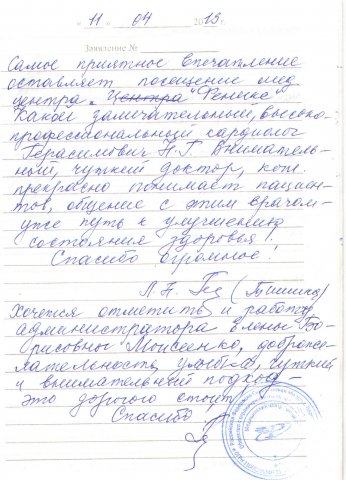 " 11 " 04 2013 г.
Заявление №
Самое приятное впечатление
оставляет посещение мед
центра „Центра "Феникс"
Какой замечательный, высоко-
профессиональный кардиолог
Герасимович Н.Г. Вниматель-
ный, чуткий доктор, кот.
прекрасно понимает пациен-
тов, общение с этим врачом-
уже путь к улучшению
состояния здоровья!
Спасибо огромное!
(Тишина)
Хочется отметить и работу
администратора Елены Бо-
рисовны Моисеенко, доброже-
лательность, улыбка, чуткий
и внимательный подход -
это дорогого стоит
Спасибо